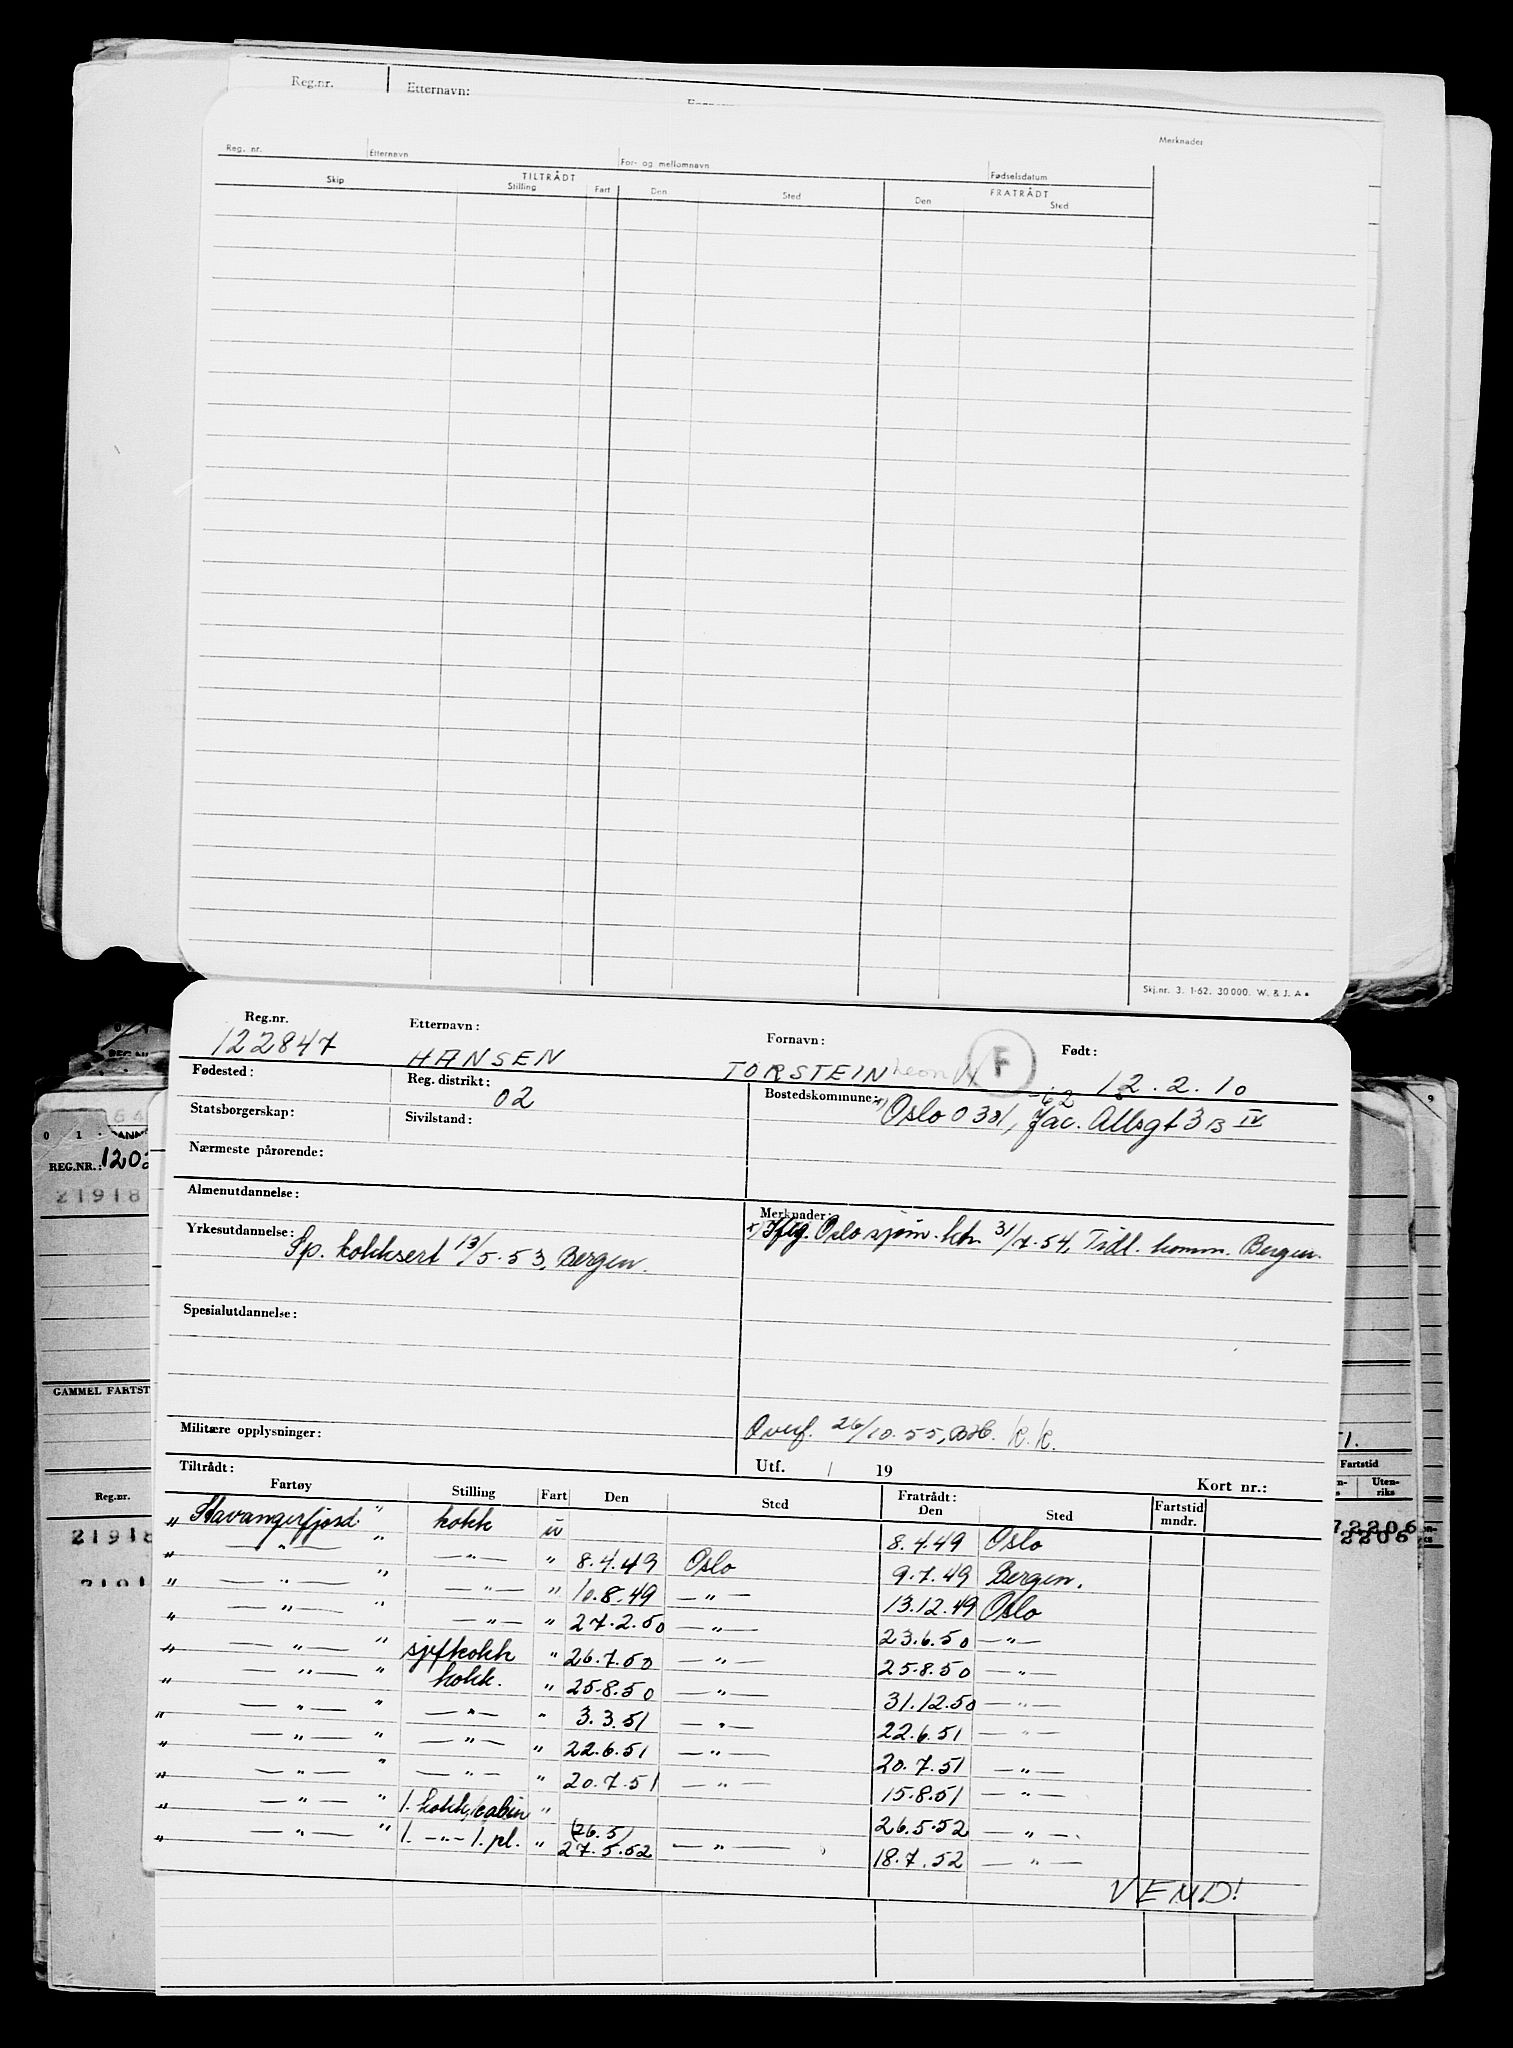 Reg.nr. Etternavn:
Merknader
Reg. nr. Etternavn For- og mellomnavn Fødselsdatum
TILTRÅDT FRATRÅDT
Skip Stilling Fart Den Sted Den Sted
Skj.nr. 3. 1-62. 30 000. W. & J. A
Reg.nr. Etternavn: Fornavn: Født:
122847 HANSEN TORSTEIN Leon F 12.2.10
Fødested: Reg. distrikt: 02 Bostedskommune: x) Oslo 0301, Jac. Allsgt 3 B IV
-62
Statsborgerskap: Sivilstand:
Nærmeste pårørende:
Almenutdannelse:
Merknader:
Yrkesutdannelse: Sp. kokksert 13/5-53, Bergen.
x) Iflg. Oslo sjøm. ktr. 31/7-54, Tidl. komm. Bergen.
Spesialutdannelse:
Militære opplysninger:
Overf. 26/10-55, BH. K.K.
Tiltrådt: Utf. / 19 Kort nr.:
Fartøy Stilling Fart Den Sted Fratrådt: Den Sted Fartstid mndr.
" Stavangerfjord " kokk u 8.4.49 Oslo
" — " — " — " — " 8.4.49 Oslo 9.7.49 Bergen.
" — " — " — " — " 10.8.49 — " — 13.12.49 Oslo
" — " — " — " — " 27.2.50 — " — 23.6.50 — " —
" — " — " sjefkokk " 26.7.50 — " — 25.8.50 — " —
" — " — " kokk. " 25.8.50 — " — 31.12.50 — " —
" — " — " — " — " 3.3.51 — " — 22.6.51 — " —
" — " — " — " — " 22.6.51 — " — 20.7.51 — " —
" — " — " — " — " 20.7.51 — " — 15.8.51 — " —
" — " — " 1. kokk, cabin " 26.5.52 — " —
" — " — " 1. — " — 1. pl. " (26.5) 27.5.52 — " — 18.7.52 — " —
VEND!
REG.NR.:
21918
GAMMEL FARTST
Reg.nr.
21918
Fartstid
Uten-
riks
72206
2206